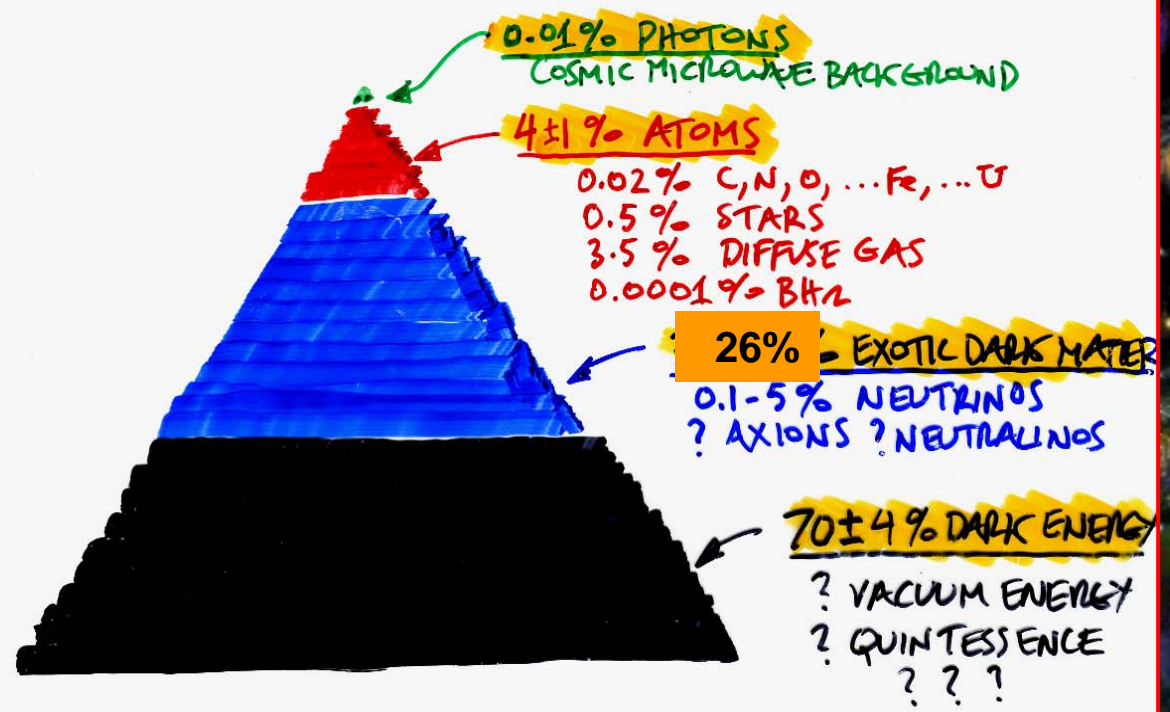 0.01% PHOTONS
COSMIC MICROWAVE BACKGROUND
4±1% ATOMS
0.02% C,N,O,...Fe,...U
0.5% STARS
3.5% DIFFUSE GAS
0.0001% BHs
26% EXOTIC DARK MATTER
0.1-5% NEUTRINOS
? AXIONS ? NEUTRALINOS
70±4% DARK ENERGY
? VACUUM ENERGY
? QUINTESSENCE
? ? ?